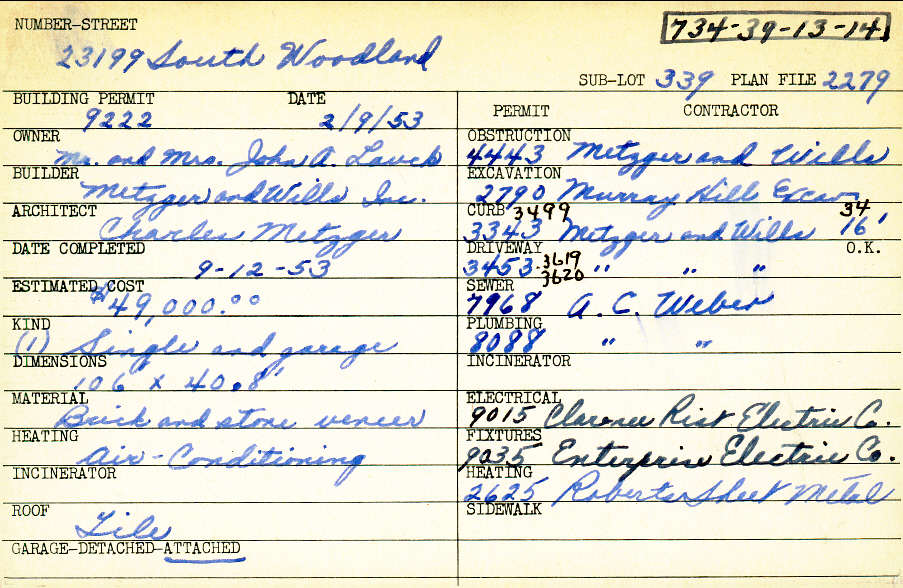 NUMBER-STREET
734-39-13-14
23199 South Woodland
SUB-LOT 339 PLAN FILE 2279
BUILDING PERMIT DATE
9222 2/9/53
OWNER
Mr. and Mrs. John A. Lauck
BUILDER
Metzger and Wills Inc.
ARCHITECT
Charles Metzger
DATE COMPLETED
9-12-53
ESTIMATED COST
$49,000.00
KIND
(1) Single and garage
DIMENSIONS
106 x 40.8'
MATERIAL
Brick and stone veneer
HEATING
Air-Conditioning
INCINERATOR
ROOF
Tile
GARAGE-DETACHED-ATTACHED
PERMIT CONTRACTOR
OBSTRUCTION
4443 Metzger and Wills
EXCAVATION
2790 Murray Hill Excav
CURB 3499 34
3343 Metzger and Wills 16'
DRIVEWAY 3619 O.K.
3453 3620 " " "
SEWER
7968 A. C. Weber
PLUMBING
8088 " "
INCINERATOR
ELECTRICAL
9015 Clarence Rist Electric Co.
FIXTURES
9035 Enterprise Electric Co.
HEATING
2625 Roberts Sheet Metal
SIDEWALK